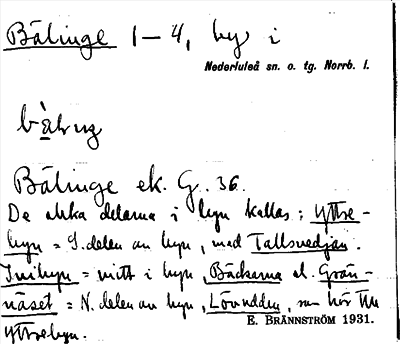 Bälinge 1–4, by i
Nederluleå sn. o. tg. Norrb. l.
Bälinge ek. G. 36.
De olika delarna i byn kallas: Yttre-
byn = S. delen av byn, med Tallsvedjan.
Inibyn = mitt i byn, Bäckerna el. Grän-
näset = N. delen av byn, Lövudden, som hör till
Yttrebyn.
E. BRÄNNSTRÖM 1931.